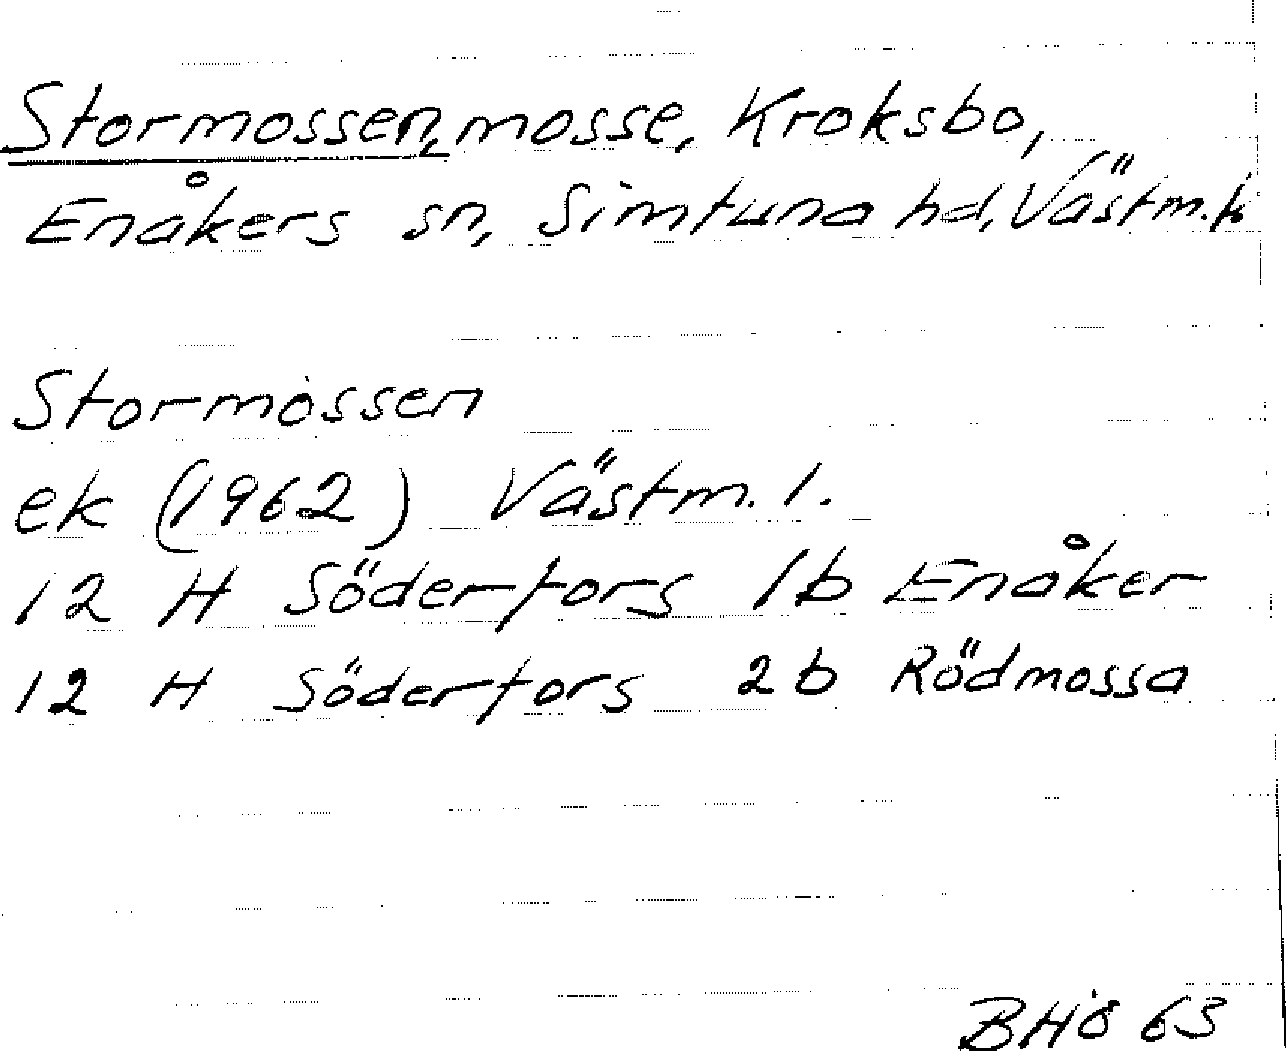 Stormossen, mosse, Kroksbo,
Enåkers sn, Simtuna hd, Västm.
Stormossen
ek (1962) Västm. l.
12 H Söderfors 1b Enåker
12 H Söderfors 2b Rödmossa
BHö 63